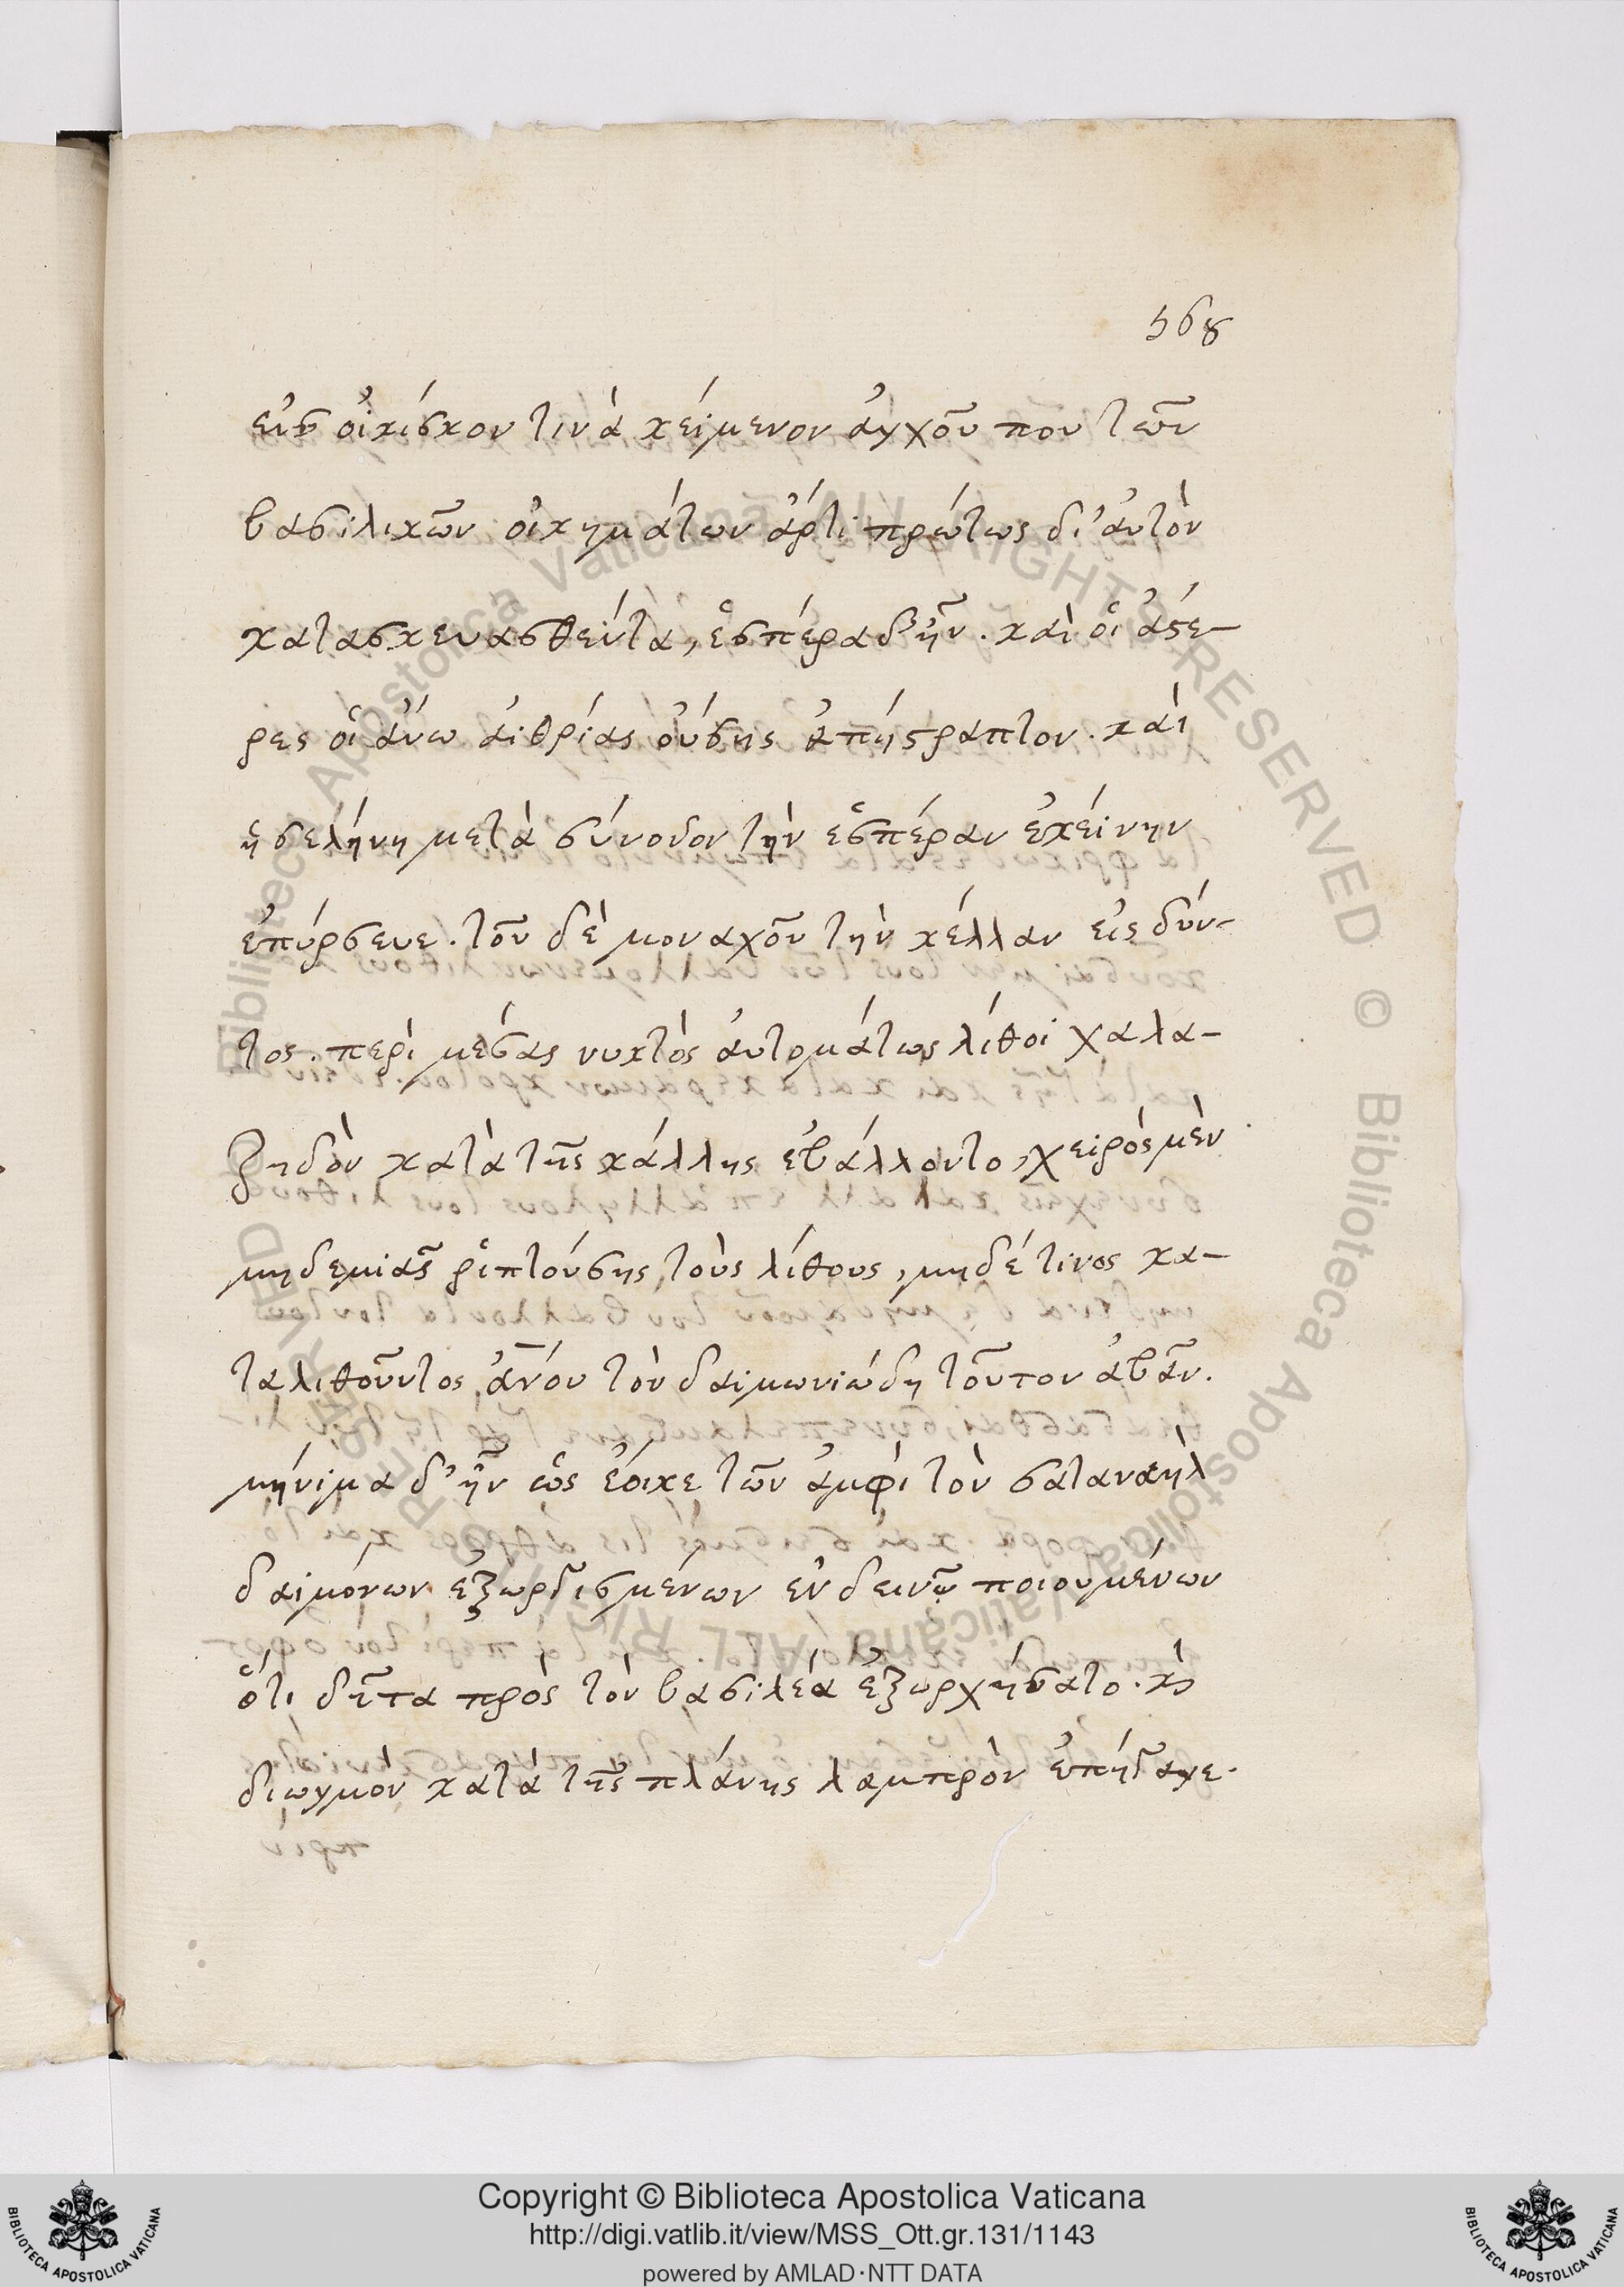 568
εἰς οἰκίσκον τινὰ κείμενον ἀγχοῦ που τῶν
βασιλικῶν οἰκημάτων ἄρτι πρώτως δι' αὐτὸν
κατασκευασθέντα, ἑσπέρα δ' ἦν. καὶ οἱ ἀστέ-
ρες οἱ ἄνω αἰθρίας οὔσης ἀπήστραπτον. καὶ
ἡ σελήνη μετὰ σύνοδον τὴν ἑσπέραν ἐκείνην
ἐπύρσευε. τοῦ δὲ μοναχοῦ τὴν κέλλαν εἰσδύν-
τος. περὶ μέσας νυκτὸς αὐτομάτως λίθοι χαλα-
ζηδὸν κατὰ τῆς κάλλης ἐβάλλοντο, χειρὸς μὲν
μηδεμιᾶς ῥιπτούσης τοὺς λίθους, μηδέ τινος κα-
ταλιθοῦντος ἀνου τὸν δαιμωνιώδη τοῦτον ἀβᾶν.
μήνιμα δ' ἦν ὡς ἔοικε τῶν ἀμφὶ τὸν σαταναὴλ
δαιμόνων ἐξωργισμένων ἐν δεινῷ ποιουμένων
ὅτι δῆτα πρὸς τὸν βασιλέα ἐξωρχήσατο. κὶ
διωγμὸν κατὰ τῆς πλάνης λαμπρὸν ἐπήγαγε.
Copyright © Biblioteca Apostolica Vaticana
http://digi.vatlib.it/view/MSS_Ott.gr.131/1143
powered by AMLAD·NTT DATA